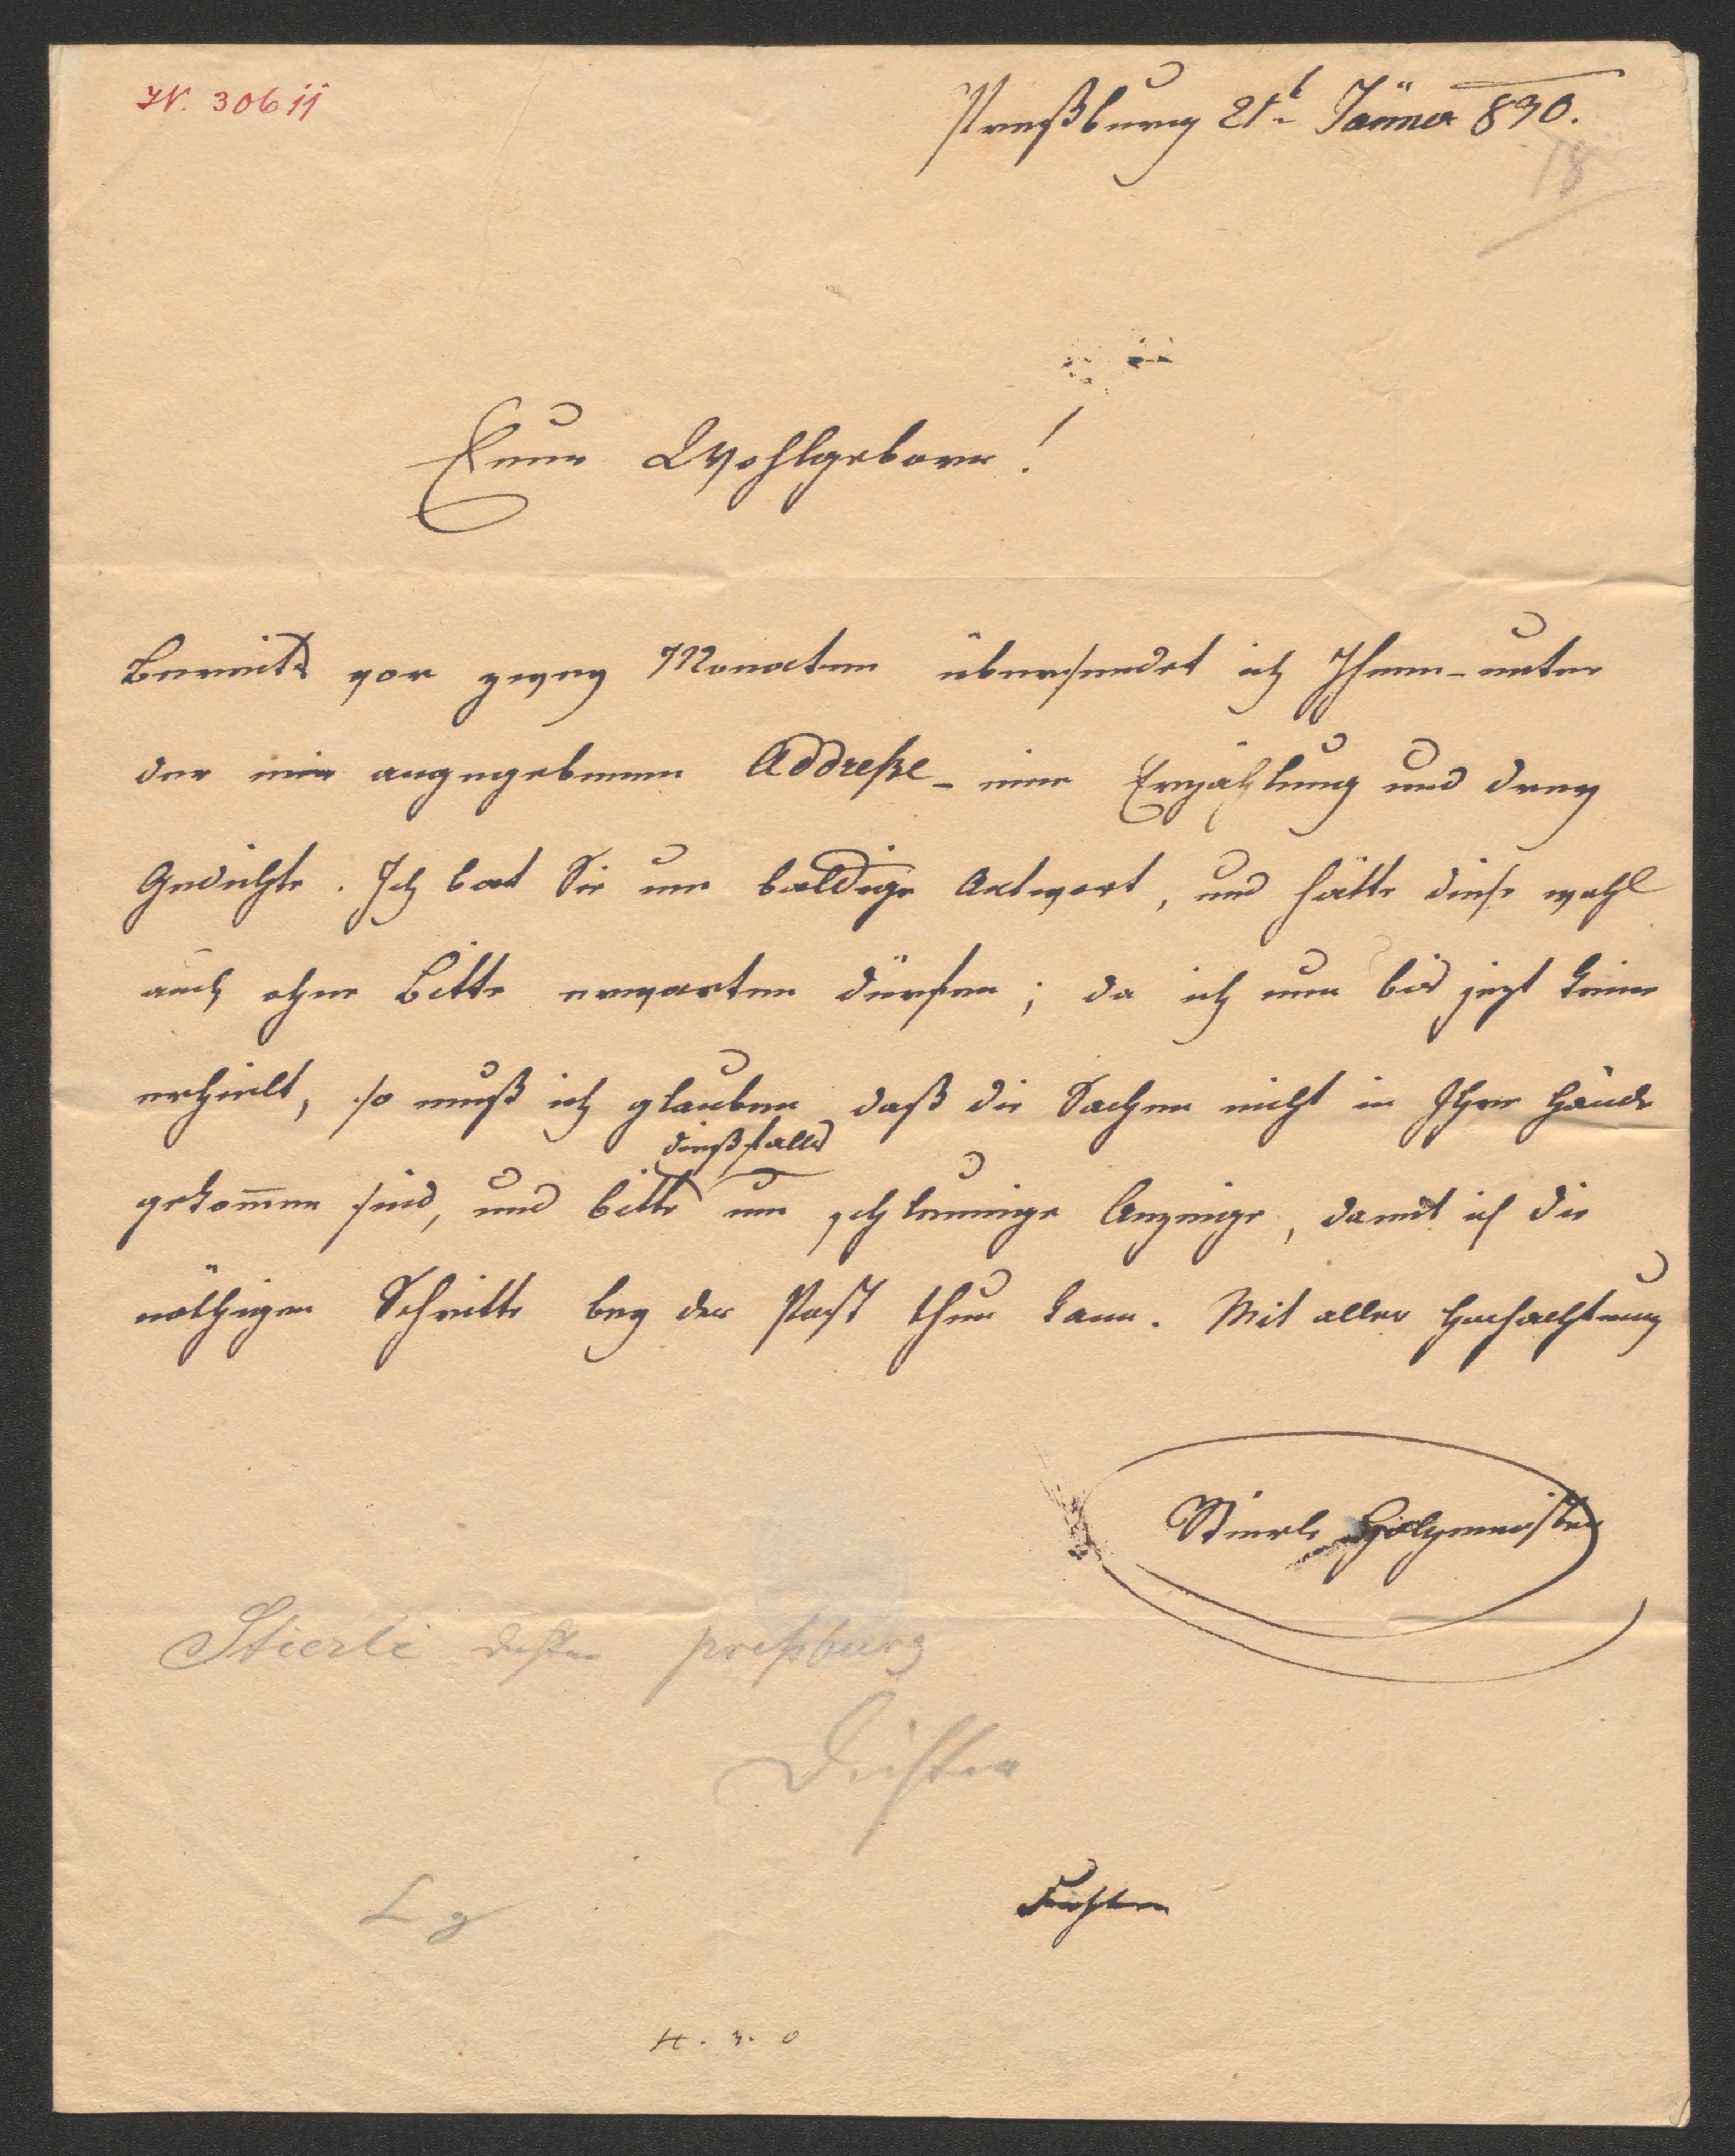 IN. 30611
Preßburg 21t Jänner 830.
18
Euer Wohlgeborn!
Bereits vor zwey Monaten übersendet ich Ihnen - unter
der mir angegebenen Addreße - eine Erzählung und drey
Gedichte. Ich bat Sie um baldige Antwort, und hätte diese wohl
auch ohne Bitte erwarten dürfen; da ich nun bis jezt keine
erhielt, so muß ich glauben daß die Sachen nicht in Ihre Hände
dießfalls
gekom̅en sind, und bitte um schleunige Anzeige, damit ich die
nöthigen Schritte bey der Post thun kann. Mit aller Hochachtung
Stierle Holzmeister
Stierle Dichter Preßburg
Dichter